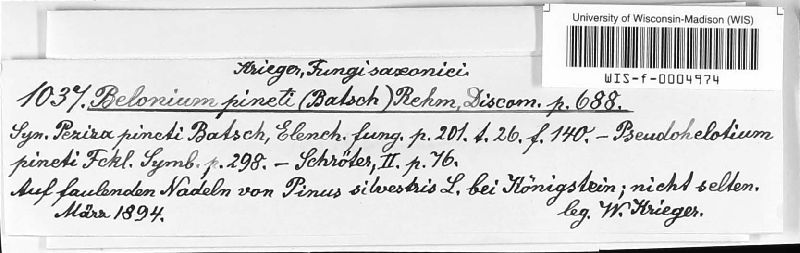 University of Wisconsin-Madison (WIS)
WIS-f-0004974
Krieger, Fungi saxonici.
1037. Belonium pineti (Batsch) Rehm, Discom. p. 688.
Syn. Peziza pineti Batsch, Elench. fung. p. 201. t. 26. f. 140. – Pseudohelotium
pineti Fckl. Symb. p. 298. – Schröter, II. p. 76.
Auf faulenden Nadeln von Pinus silvestris L. bei Königstein; nicht selten.
März 1894.
leg. W. Krieger.